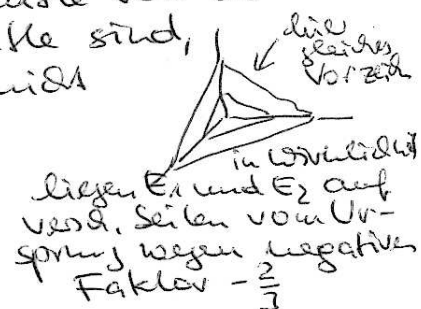 sind,
hier
gleiches
Vorzeich
in Wirklichkeit
liegen E₁ und E₂ auf
versch. Seiten vom Ur-
sprung wegen negativen
Faktor - 2/3